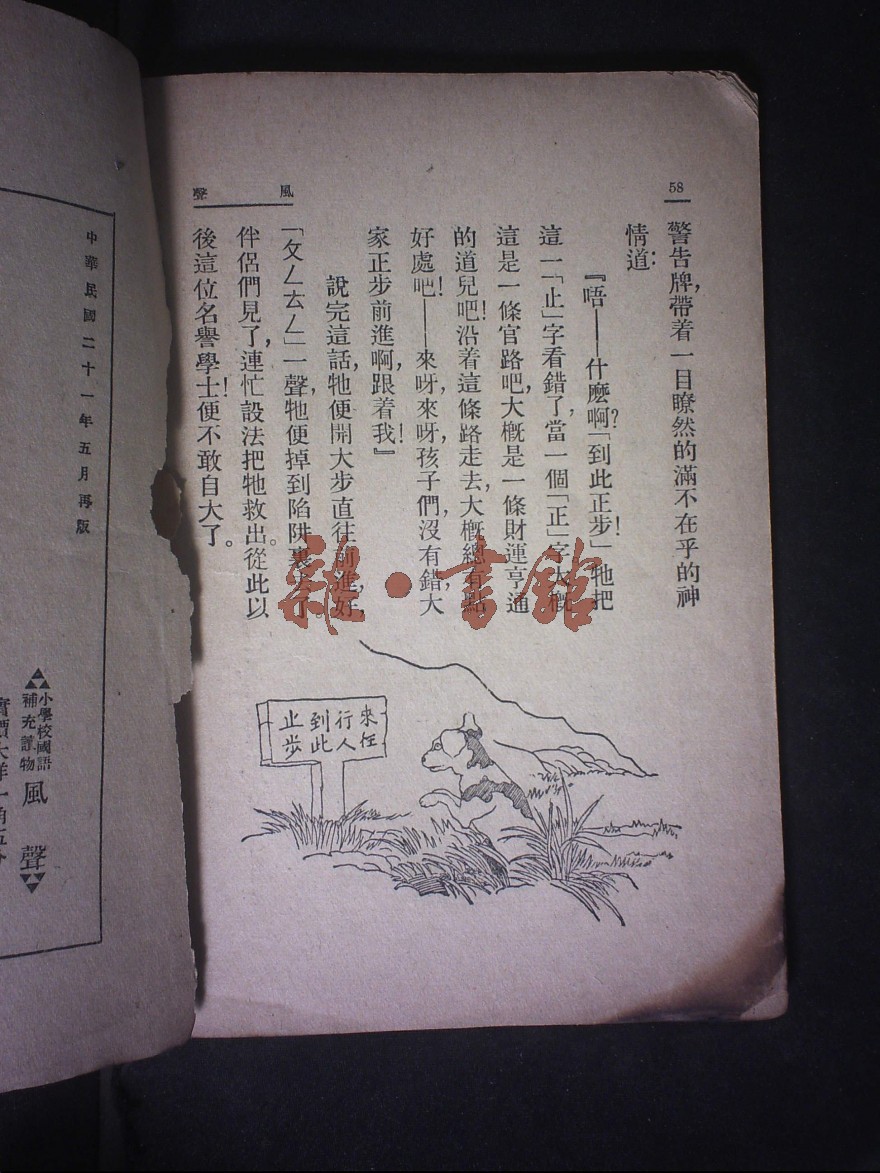 58
風聲
警告牌，帶着一目瞭然的滿不在乎的神
情道：
『唔——什麽啊？「到此正步！」牠把
這一「止」字看錯了，當一個「正」字大槪
這是一條官路吧，大槪是一條財運亨通
的道兒吧！沿着這條路走去，大槪總有點
好處吧！——來呀，來呀，孩子們，沒有錯，大
家正步前進啊，跟着我！』
說完這話，牠便開大步直往前進，好，
「ㄆㄥㄊㄥ」一聲，牠便掉到陷阱裏去了。
伴侶們見了，連忙設法把牠救出。從此以
後這位名譽學士便不敢自大了。
來往
行人
到此
止步
雜·書館
中華民國二十一年五月再版
小學校國語
補充讀物
風聲
實價大洋一角五分